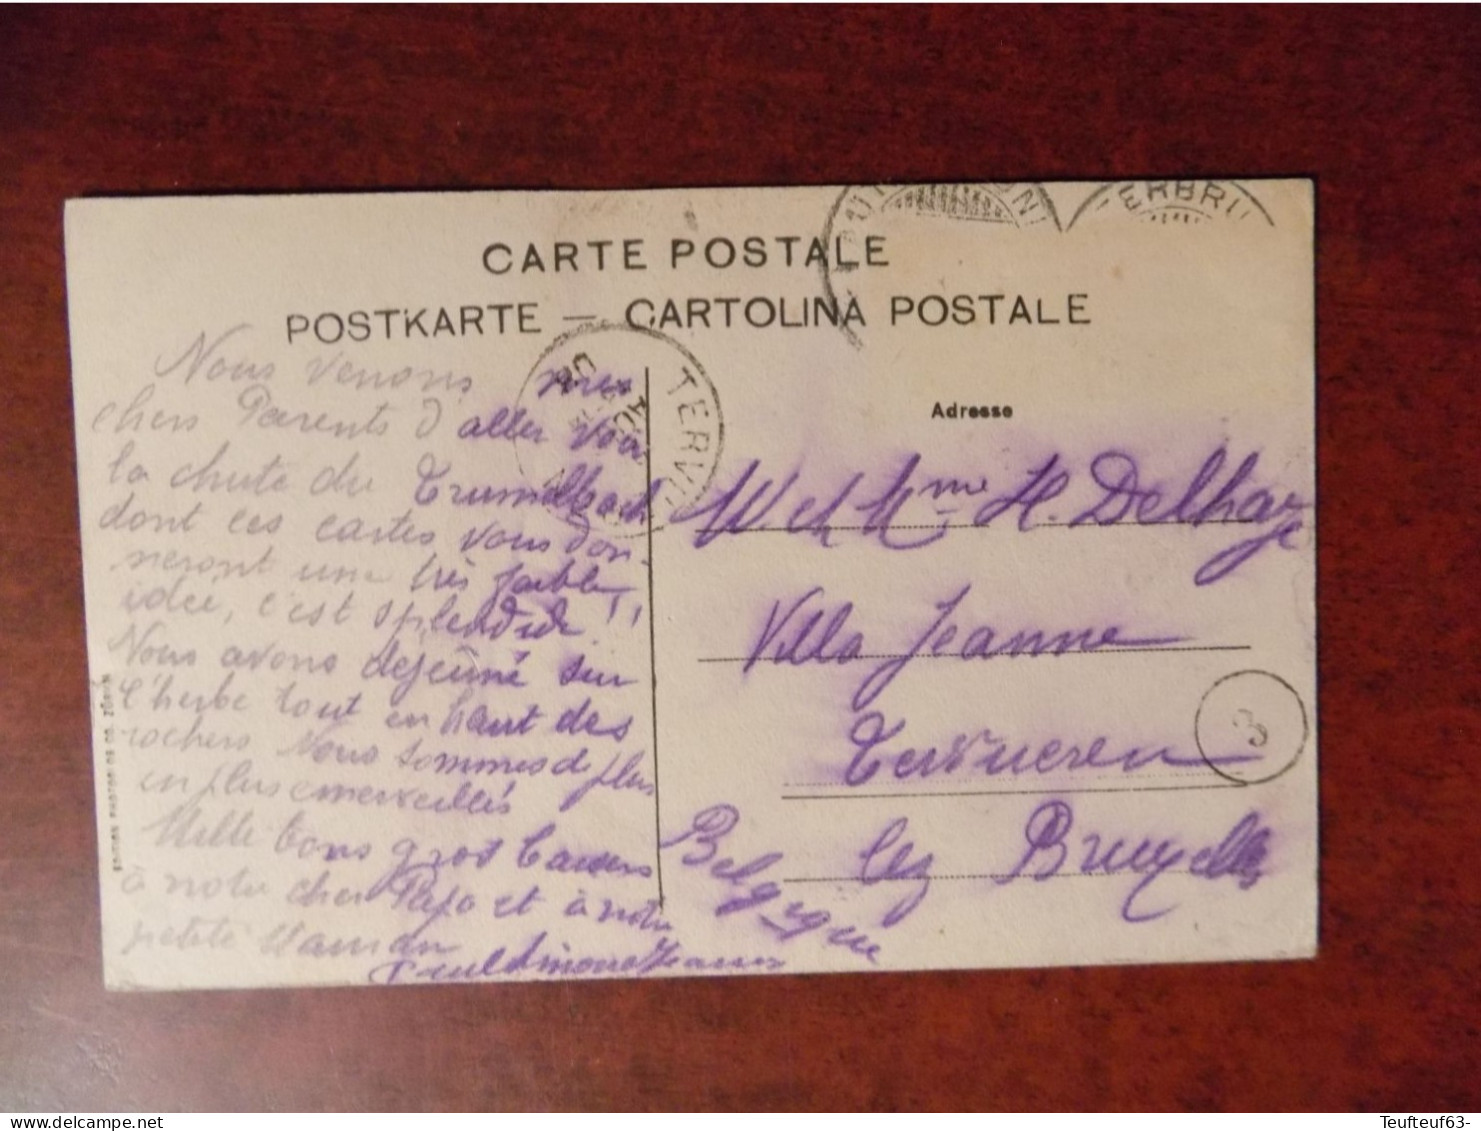 CARTE POSTALE
POSTKARTE — CARTOLINA POSTALE
TERBRU
TERVU
Nous venons mes
chers Parents d'aller voir
la chute du Trumelbach
dont ces cartes vous don-
neront une très faible
idée, c'est splendide!!
Nous avons déjeuné sur
l'herbe tout en haut des
rochers Nous sommes de plus
en plus émerveillés
Mille bons gros baisers
à notre cher Papa et à notre
petite Maman
Adresse
M. et Mme H. Delhaye
Villa Jeanne
Tervueren
lez Bruxelles
Belgique
3
Teufteuf63-
delcampe.net